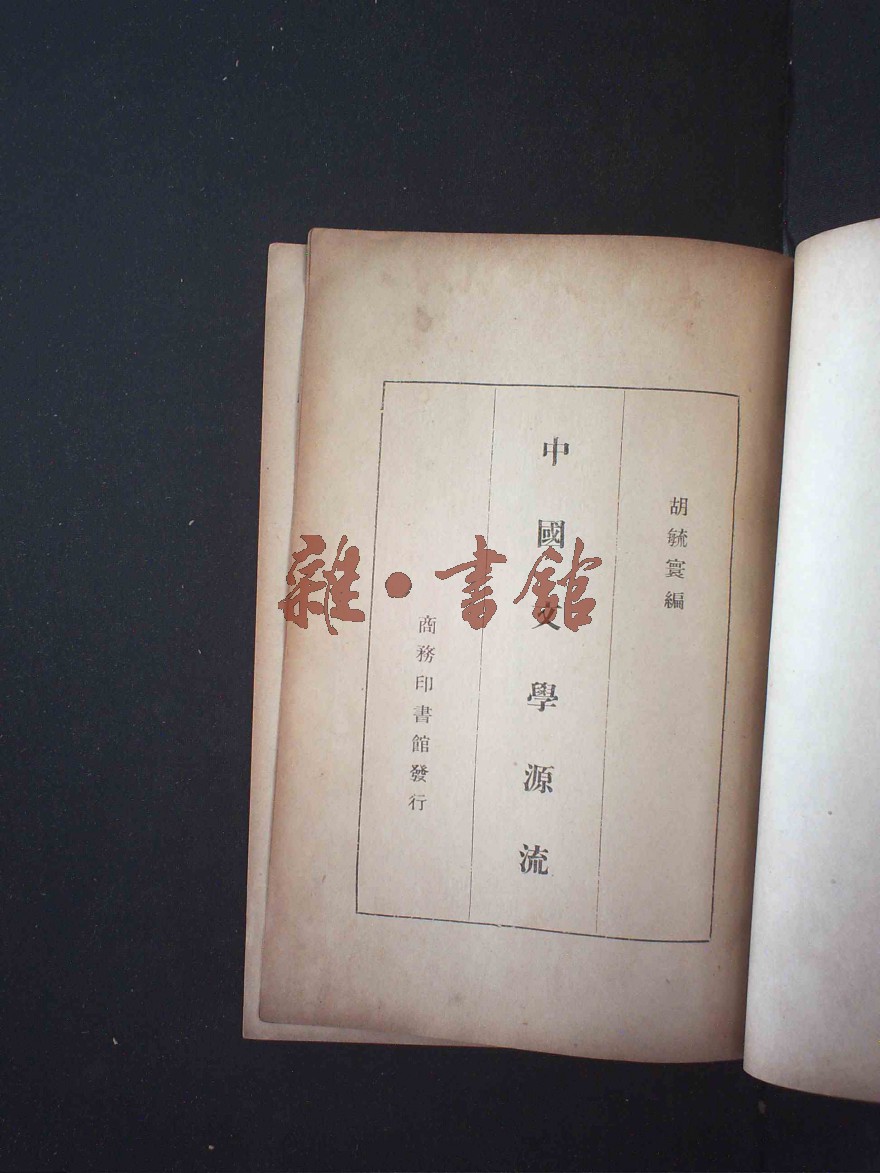 胡毓寰編
中國文學源流
商務印書館發行
雜·書館